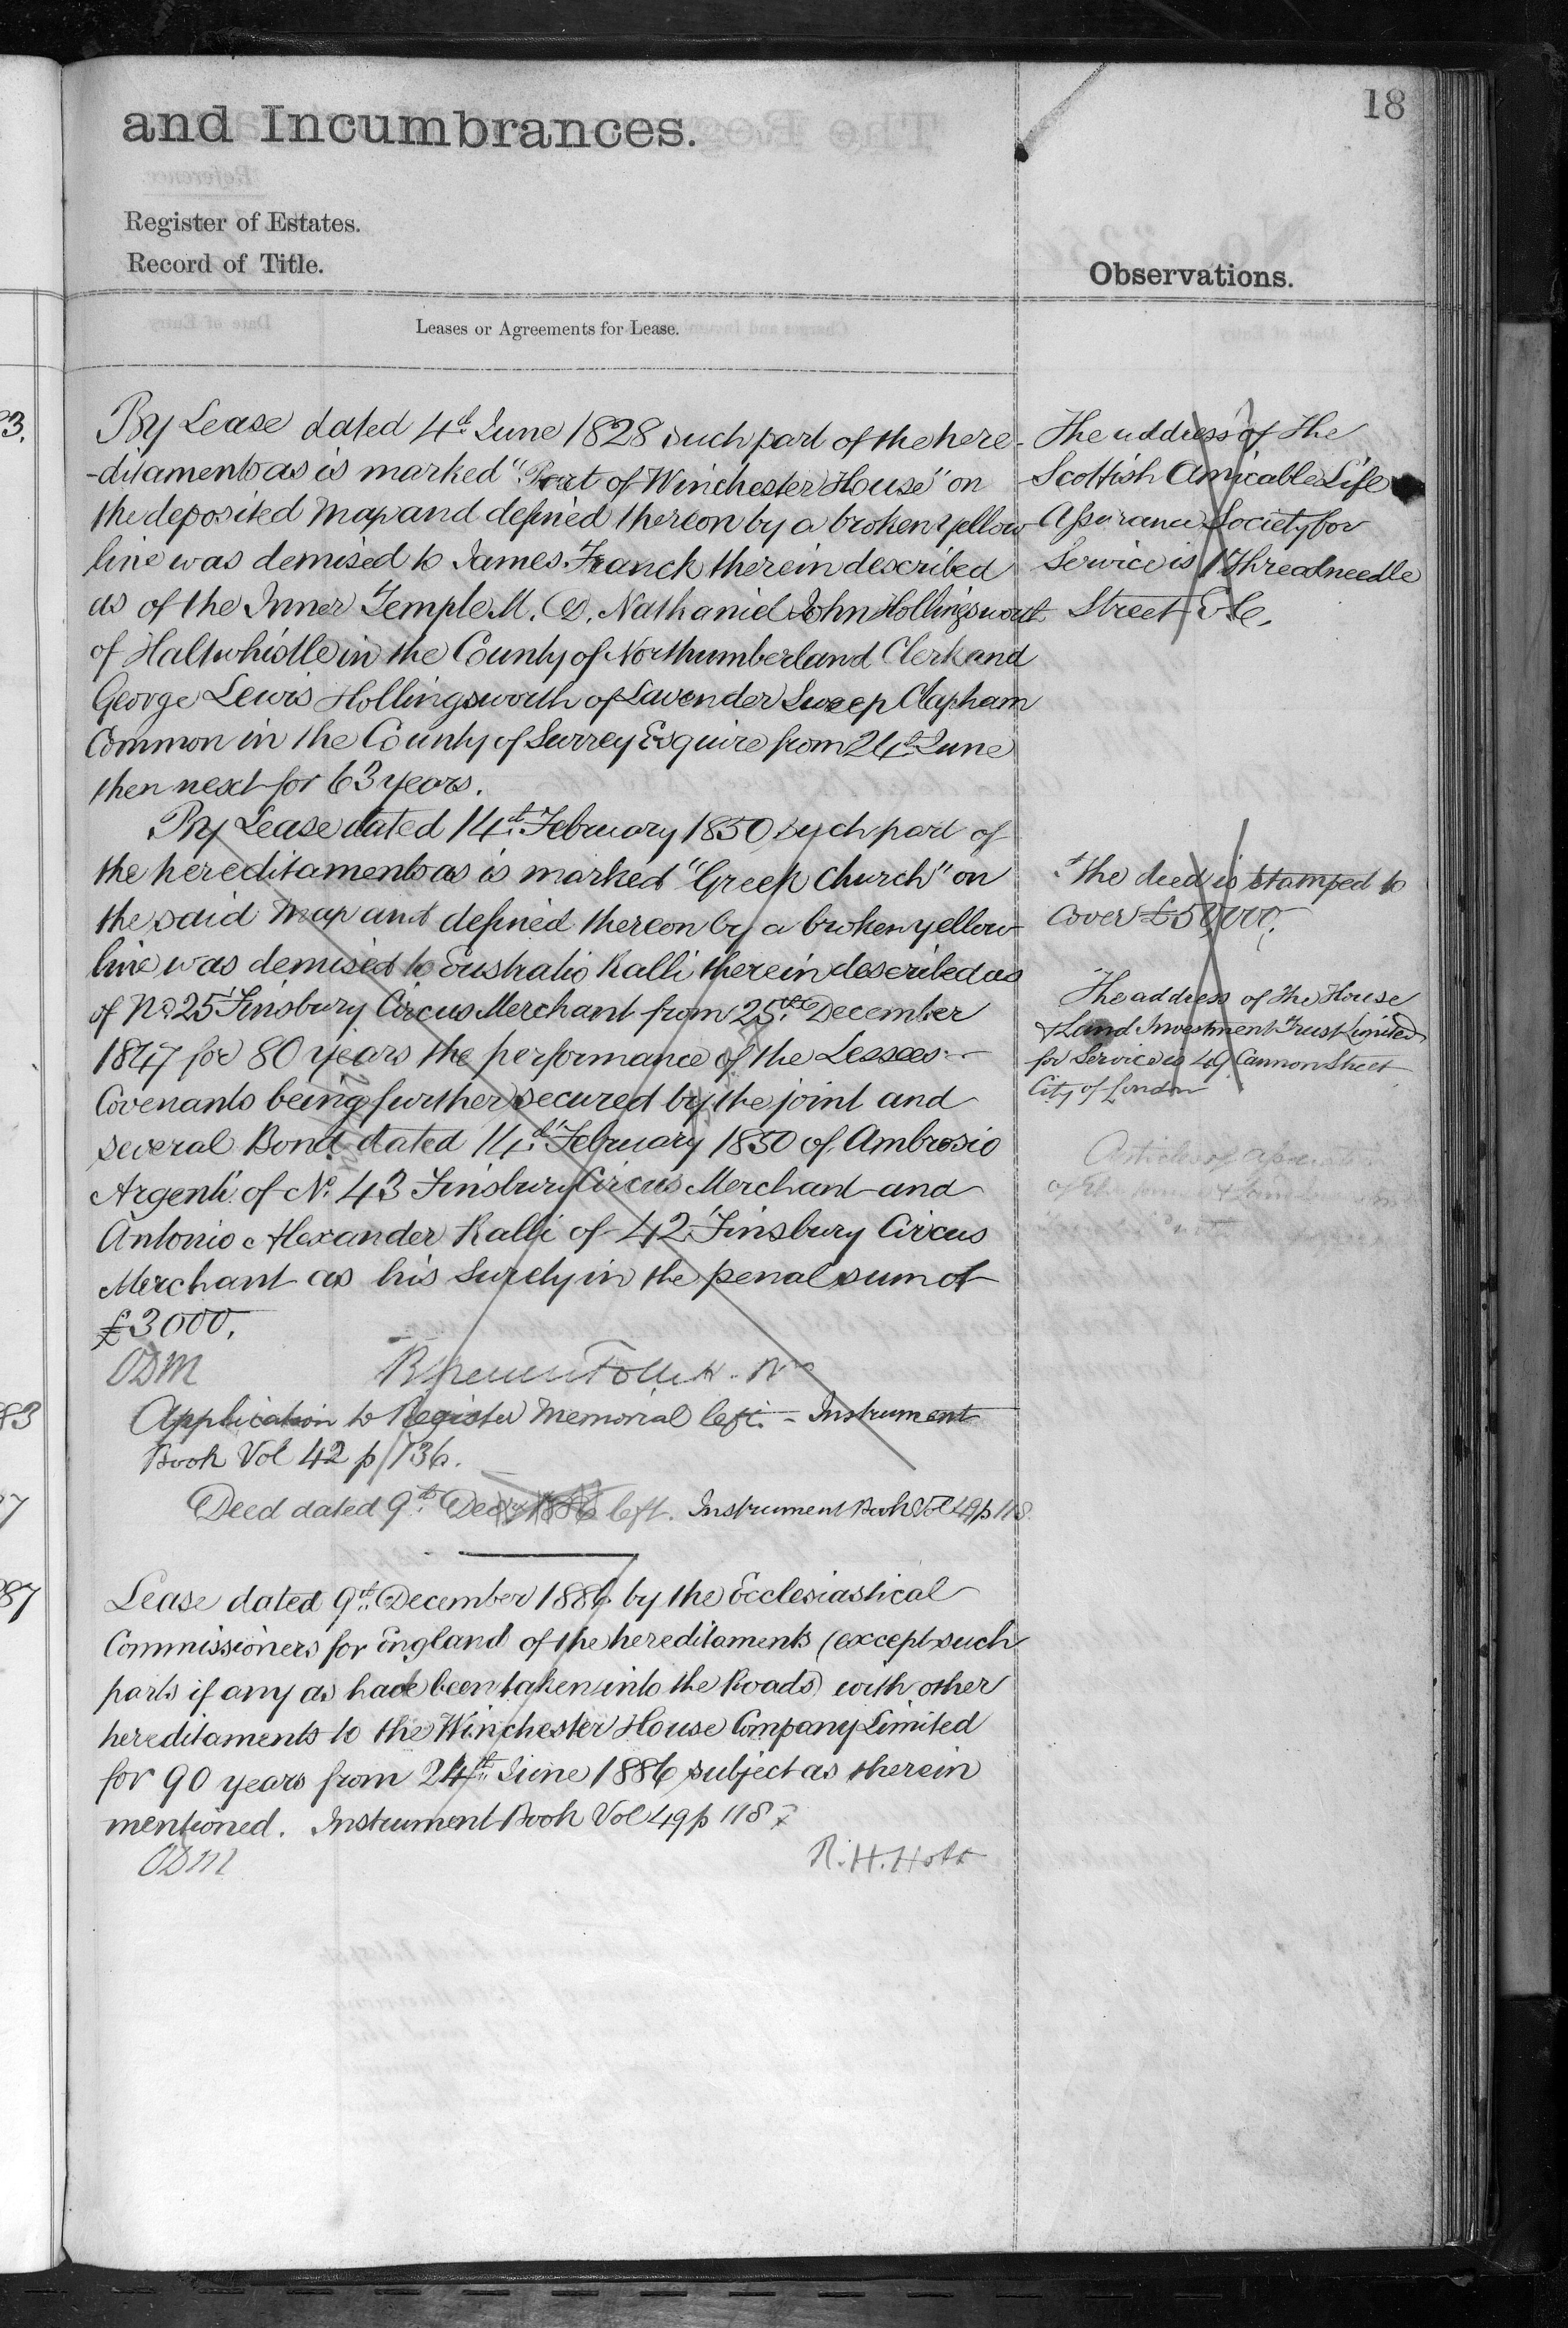 18
and Incumbrances.
Register of Estates.
Record of Title.
Observations.
Leases or Agreements for Lease.
3.
By Lease dated 4th June 1828 such part of the here-
-ditaments as is marked "Part of Winchester House" on
the deposited Map and defined thereon by a broken yellow
line was demised to James Franck therein described
as of the Inner Temple M. D. Nathaniel John Hollingsworth
of Haltwhistle in the County of Northumberland Clerk and
George Lewis Hollingsworth of Lavender Sweep Clapham
Common in the County of Surrey Esquire from 24th June
then next for 63 years.
By Lease dated 14th February 1850 such part of
the hereditaments as is marked "Greek Church" on
the said Map and defined thereon by a broken yellow
line was demised to Eustratio Ralli therein described as
of No. 25 Finsbury Circus Merchant from 25th December
1847 for 80 years the performance of the Lessees
Covenants being further secured by the joint and
several Bond dated 14th February 1850 of Ambrosio
Argenti of No. 43 Finsbury Circus Merchant and
Antonio Alexander Ralli of 42 Finsbury Circus
Merchant as his Surety in the penal sum of
£3000.
ODM
83
Application to Register Memorial left. - Instrument
Book Vol 42 p 136.
7
Deed dated 9th Decr 1886 left. Instrument Book Vol 49 p 118.
87
Lease dated 9th December 1886 by the Ecclesiastical
Commissioners for England of the hereditaments (except such
parts if any as have been taken into the Roads) with other
hereditaments to the Winchester House Company Limited
for 90 years from 24th June 1886 subject as therein
mentioned. Instrument Book Vol 49 p 118
ODM
R. H. Holt
The address of the
Scottish Amicable Life
Assurance Society for
Service is 1 Threadneedle
Street E.C.
The deed is stamped to
cover £50,000.
The address of The House
& Land Investment Trust Limited
for Service is 49 Cannon Street
City of London